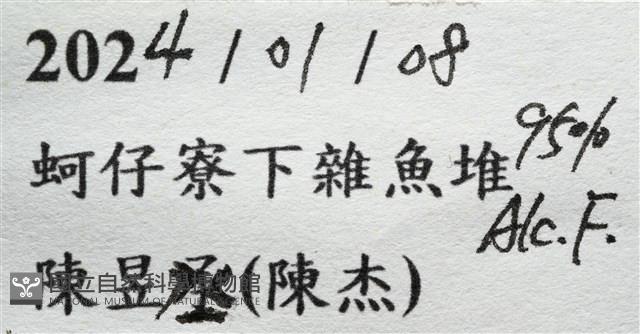 2024/01/08
蚵仔寮下雜魚堆 95%
Alc.F.
陳昱丞(陳杰)
國立自然科學博物館
NATIONAL MUSEUM OF NATURAL SCIENCE